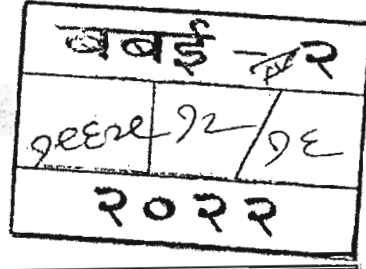 बबई - २
१८६२८ १२/१६
२०२२